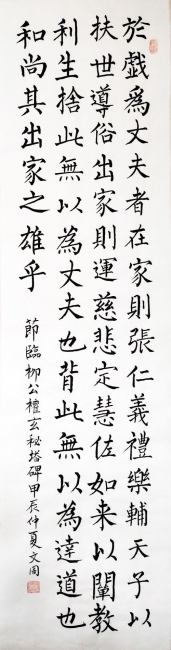 於戲爲丈夫者在家則張仁義禮樂輔天子以
扶世導俗出家則運慈悲定慧佐如来以闡教
利生捨此無以為丈夫也背此無以為達道也
和尚其出家之雄乎
節臨柳公權玄秘塔碑甲辰仲夏文周